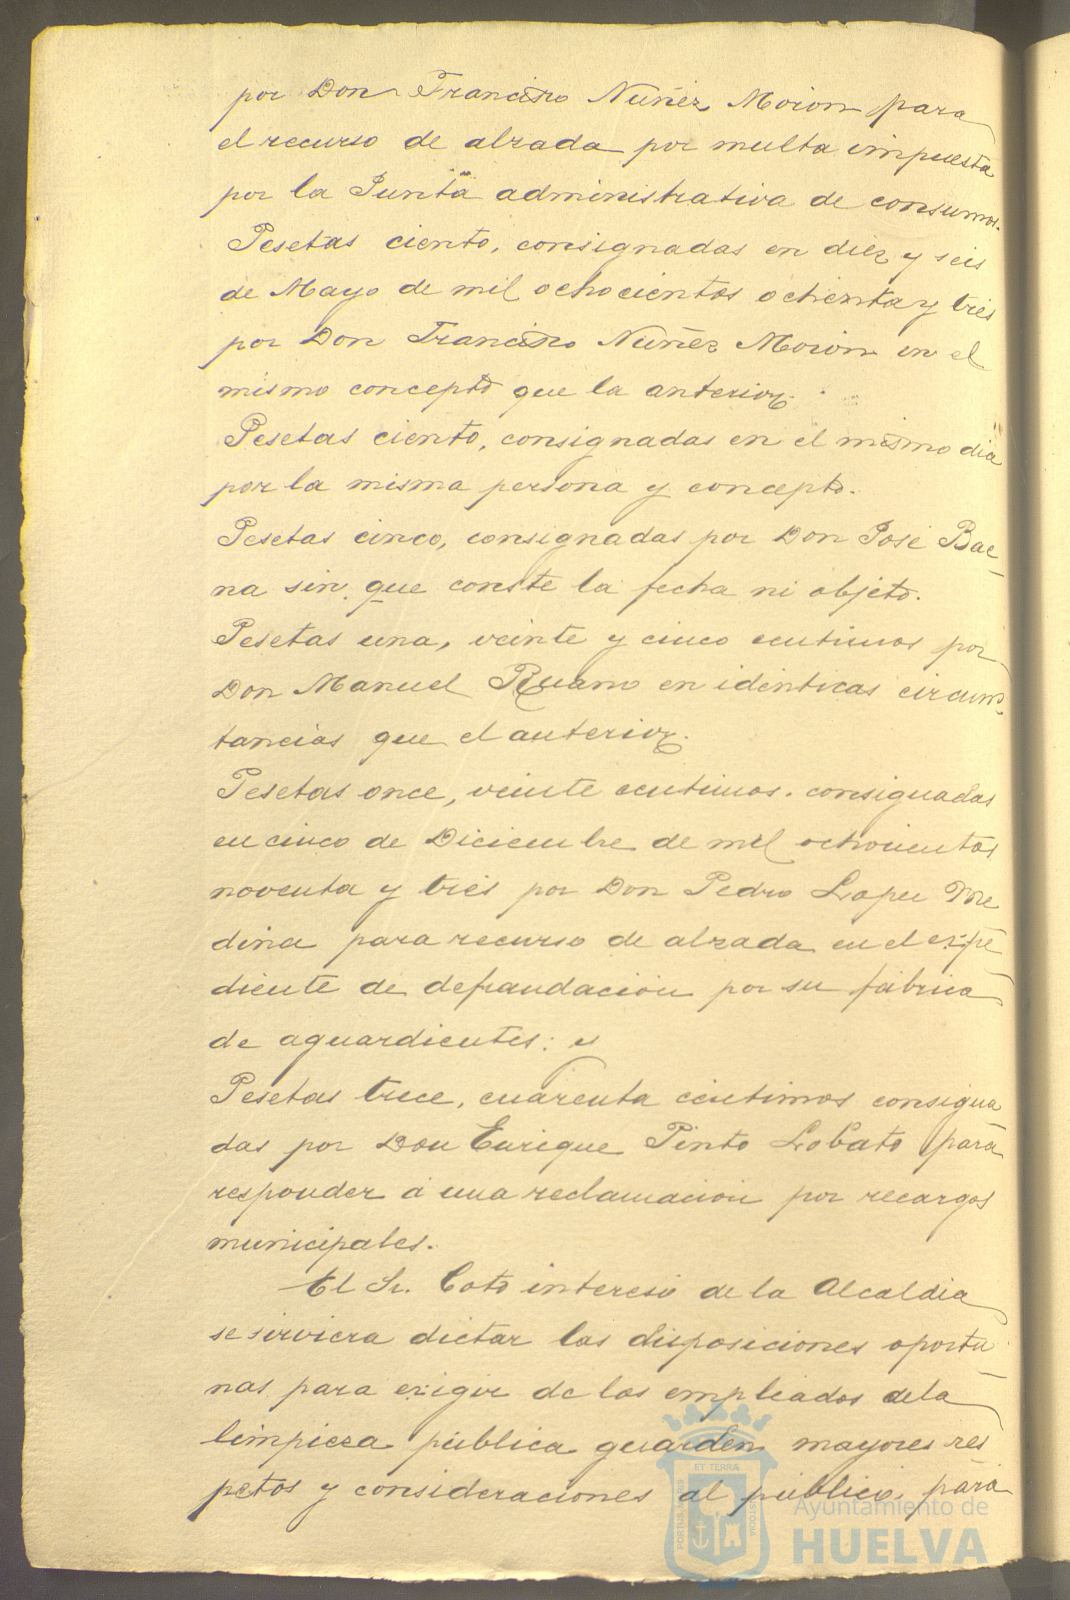 por Don Francisco Nuñez Moion para
el recurso de alzada por multa impuesta
por la Junta administrativa de consumos.
Pesetas ciento, consignadas en diez y seis
de Mayo de mil ochocientos ochenta y tres
por Don Francisco Nuñez Moion en el
mismo concepto que la anterior.
Pesetas ciento, consignadas en el mismo dia
por la misma persona y concepto.
Pesetas cinco, consignadas por Don José Bae-
na sin que conste la fecha ni objeto.
Pesetas una, veinte y cinco centimos por
Don Manuel Ruano en identicas circuns-
tancias que el anterior.
Pesetas once, veinte centimos. consignadas
en cinco de Diciembre de mil ochocientos
noventa y tres por Don Pedro Lopez Me
dina para recurso de alzada en el expe
diente de defraudación por su fábrica
de aguardientes: y
Pesetas trece, cuarenta centimos consigna
das por Don Enrique Pinto Lobato para
responder á una reclamación por recargos
municipales.
El Sr. Coto interesó de la Alcaldia
se sirviera dictar las disposiciones oportu-
nas para exigir de los empleados de la
limpieza pública guarden mayores res
petos y consideraciones al público, para
ET TERRÆ
PORTUS MARIS
CUSTODIA
Ayuntamiento de
HUELVA